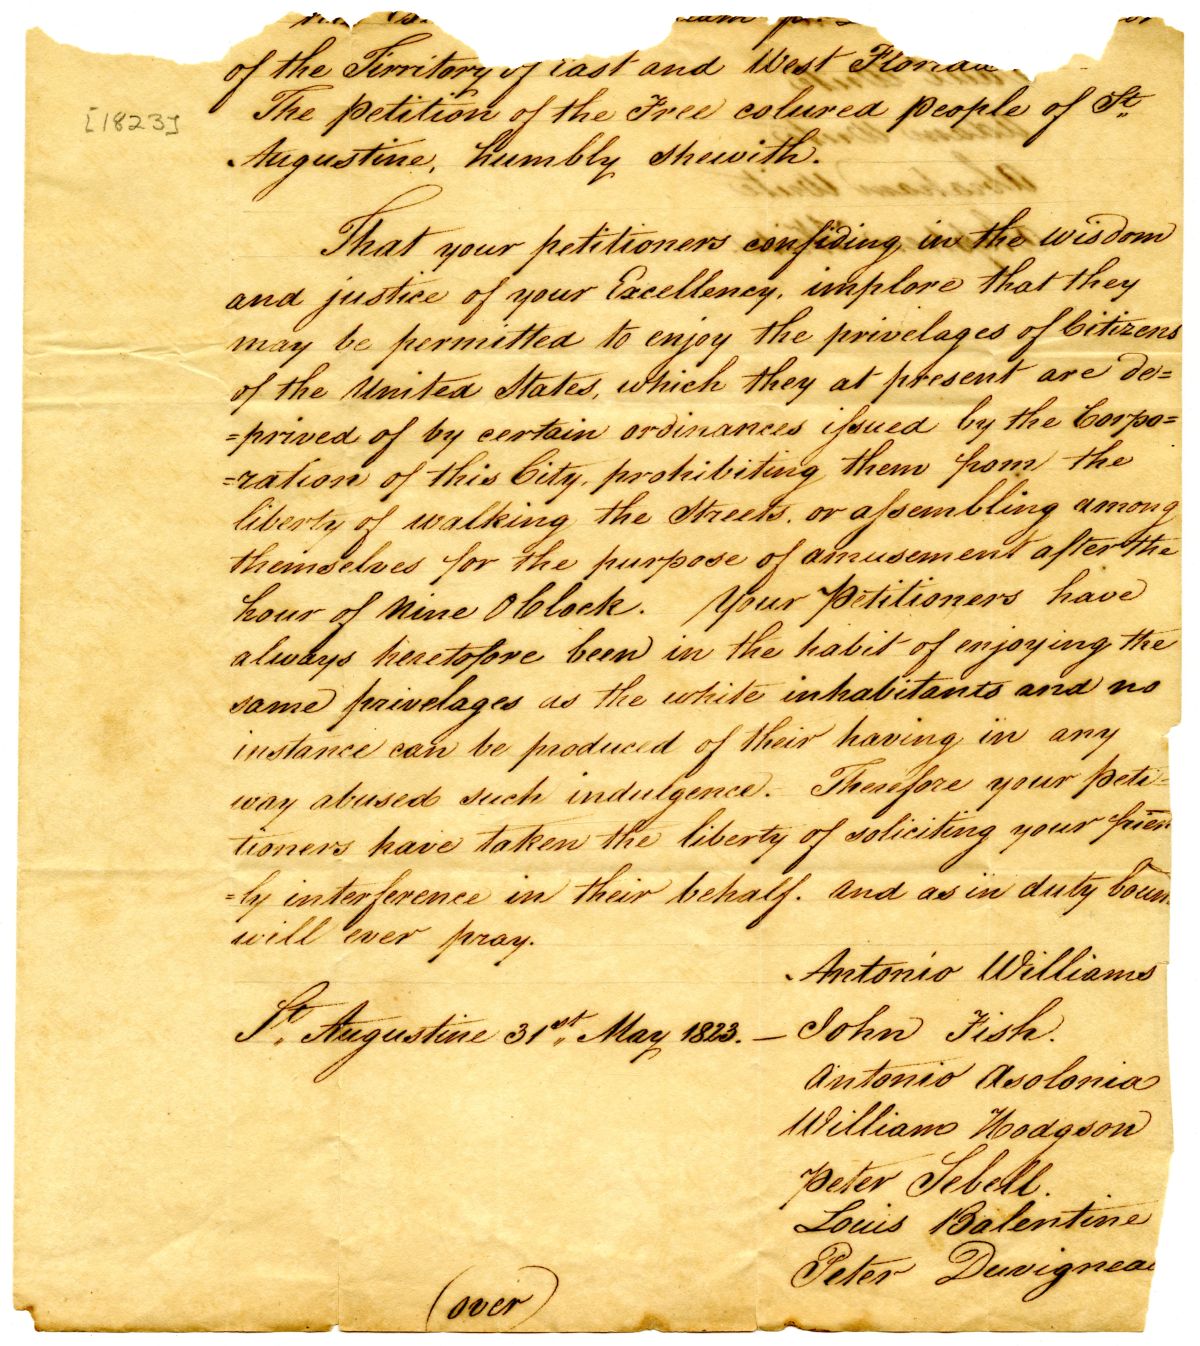 of the Territory of East and West Florida
[1823]
The petition of the Free colured people of St.
Augustine, humbly shewith.
That your petitioners confiding in the wisdom
and justice of your Excellency, implore that they
may be permitted to enjoy the privelages of Citizens
of the United States, which they at present are de=
=prived of by certain ordinances issued by the Corpo=
=ration of this City, prohibiting them from the
liberty of walking the Streets, or assembling among
themselves for the purpose of amusement after the
hour of Nine O Clock. Your Petitioners have
always heretofore been in the habit of enjoying the
same privelages as the white inhabitants and no
instance can be produced of their having in any
way abused such indulgence. Therefore your peti-
tioners have taken the liberty of soliciting your frien
=ly interference in their behalf. and as in duty boun
will ever pray.
Antonio Williams
St. Augustine 31st. May 1823. — John Fish.
Antonio Asolonia
William Hodgson
Peter Sebell.
Louis Balentine
Peter Duvigneau
(over)